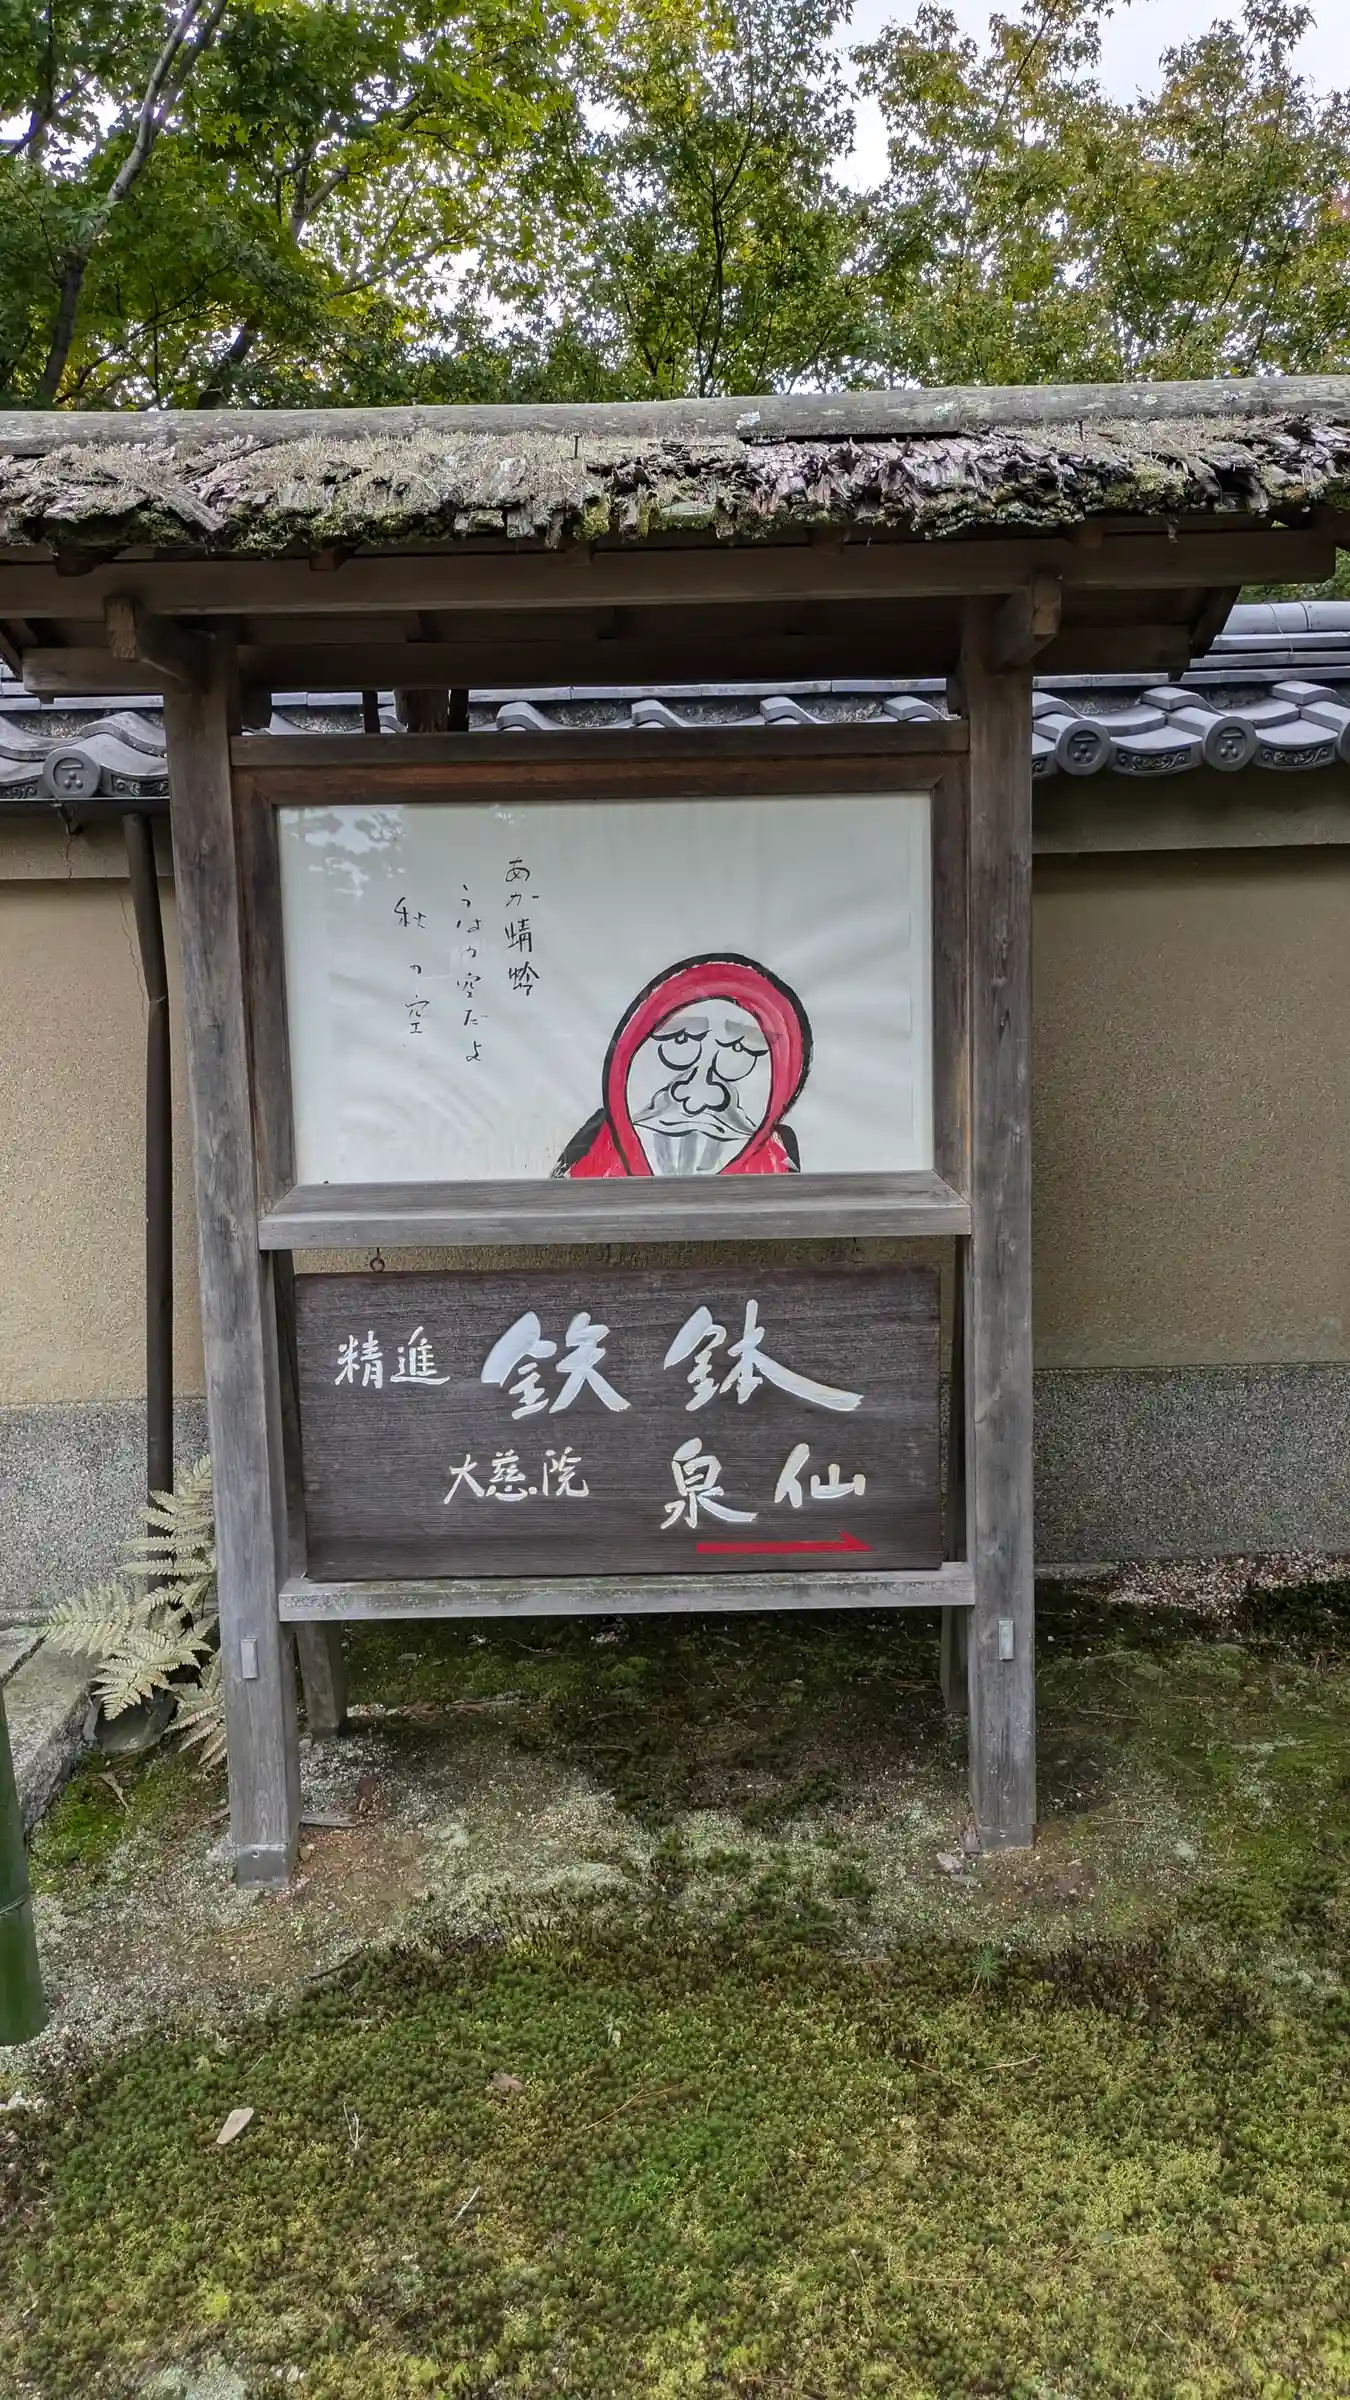 あか蜻蛉
うはの空だよ
秋の空
精進 鉄鉢
大慈院 泉仙